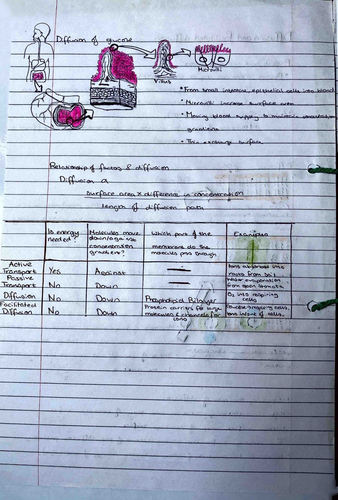 Diffusion of glucose
Villus
Microvilli
• From small intestine epithelial cells into blood
• Microvilli increase surface area
• Moving blood supply to maintain concentration gradient
• Thin exchange surface
Relationship of factors & diffusion
Diffusion α
surface area x difference in concentration
length of diffusion path
Is energy needed?
Molecules move down/against concentration gradient?
Which part of the membrane do the molecules pass through
Examples
Active Transport
Yes
Against
—
Ions absorbed into roots from soil
Passive Transport
No
Down
—
Water evaporation from open stomata
Diffusion
No
Down
Phospholipid Bilayer
O₂ into respiring cells
Facilitated Diffusion
No
Down
Protein carriers for large molecules & channels for ions